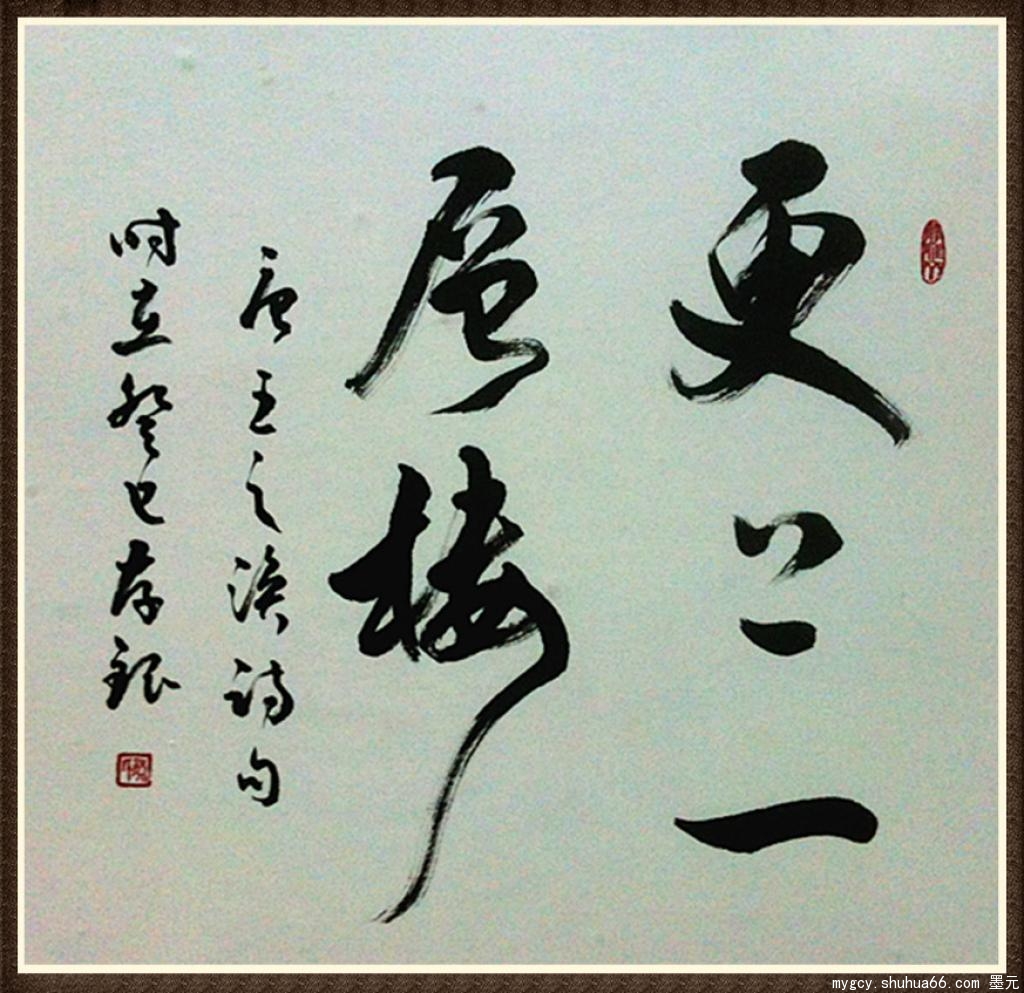 更上一
层楼
唐王之涣诗句
时在癸巳存银
mygcy.shuhua66.com 墨元